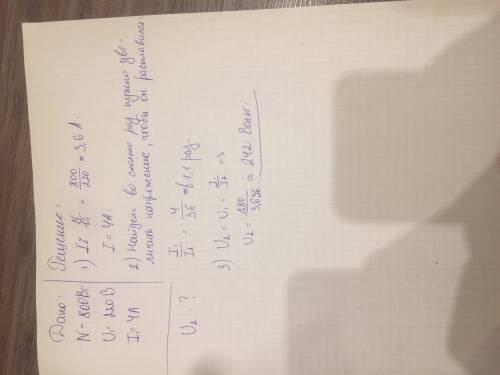 Дано:
N = 800Вт
U₁ = 220В
I₁ = 4А.
U₂ - ?
Решение:
1) I₂ = N/U₁ = 800/220 = 3,6 А.
I = 4А
2) Найдем во сколько раз нужно уве-
личить напряжение, чтобы он расплавился
I₁/I₂ = 4/3,6 = в 1,1 раз.
3) U₂ = U₁ · I₁/I₂ =>
U₂ = 880/3,636 ≈ 242 Вольт.